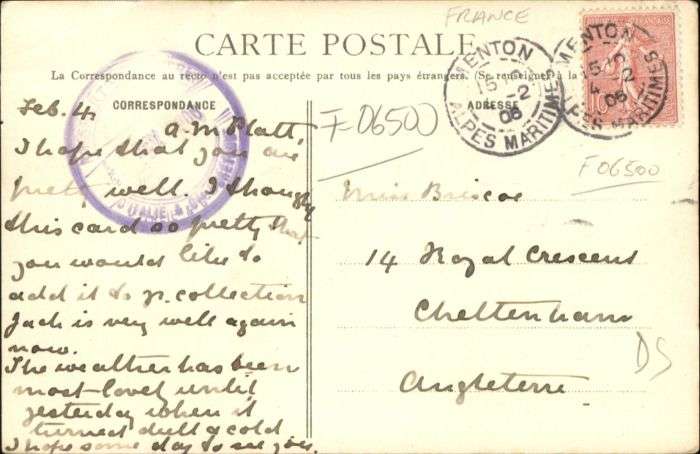 FRANCE
CARTE POSTALE
La Correspondance au recto n'est pas acceptée par tous les pays étrangers. (Se renseigner à la
CORRESPONDANCE
ADRESSE
MENTON
15
2
06
ALPES MARITIMES
MENTON
15
4 2
06
ALPES MARITIMES
10
F-06500
F06500
D'ITALIE &
Feb. 4.
A. M. Platt
I hope that you are
pretty well. I thought
this card so pretty that
you would like to
add it to yr. collection
Jack is very well again
now.
The weather has been
most lovely until
yesterday when it
turned dull & cold
I hope some day to see you.
Miss Briscoe
14 Royal Crescent
Cheltenham
Angleterre
DS